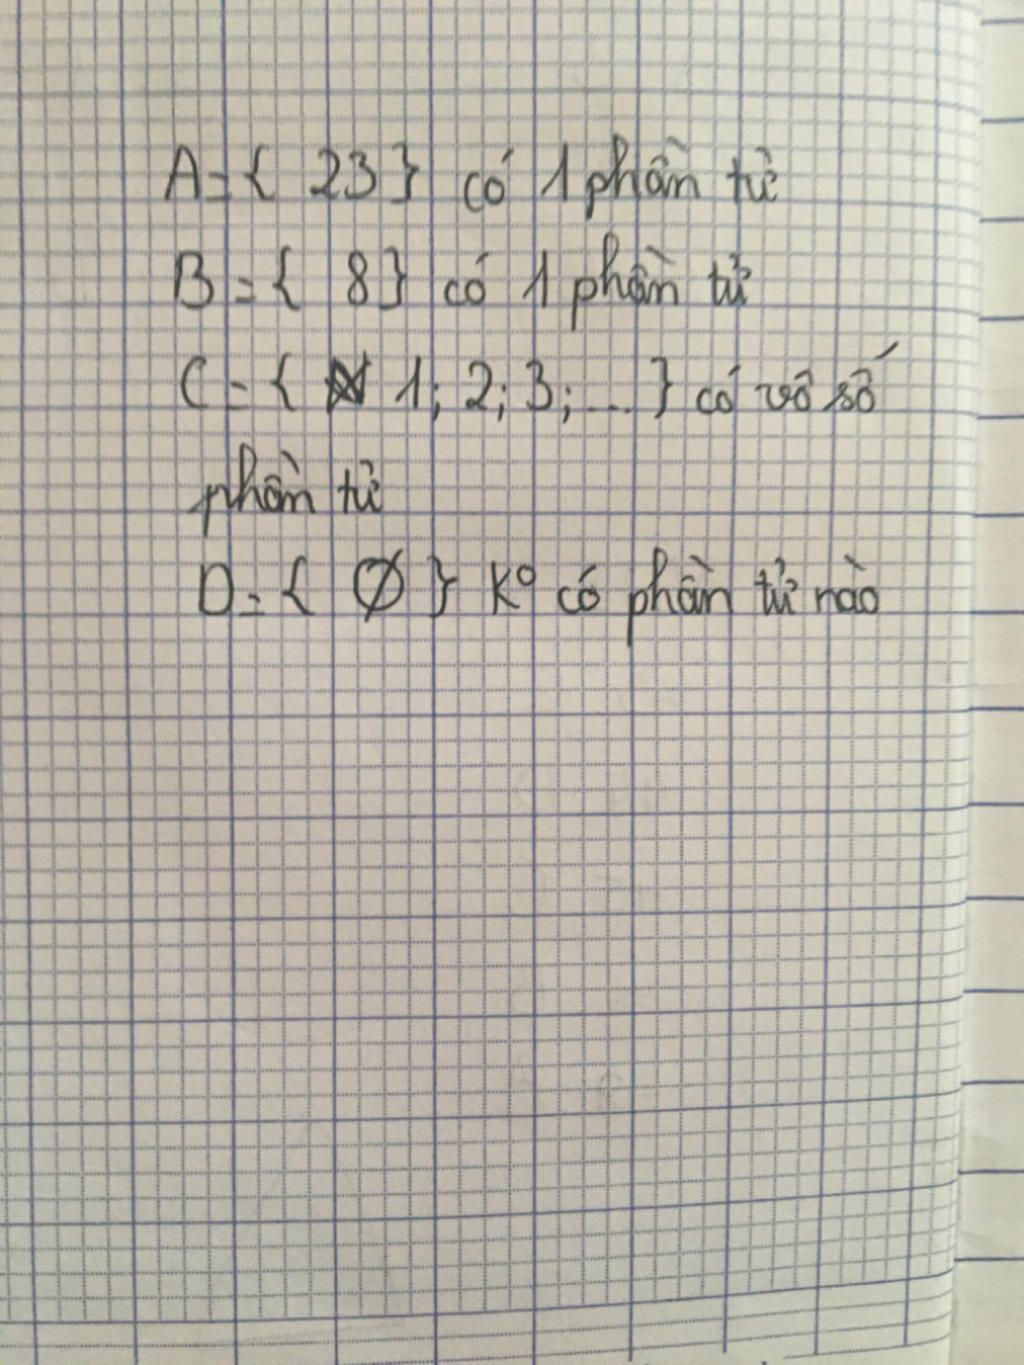 A = { 23 } có 1 phần tử
B = { 8 } có 1 phần tử
C = { 1; 2; 3; ... } có vô số
phần tử
D = { ∅ } Kº có phần tử nào